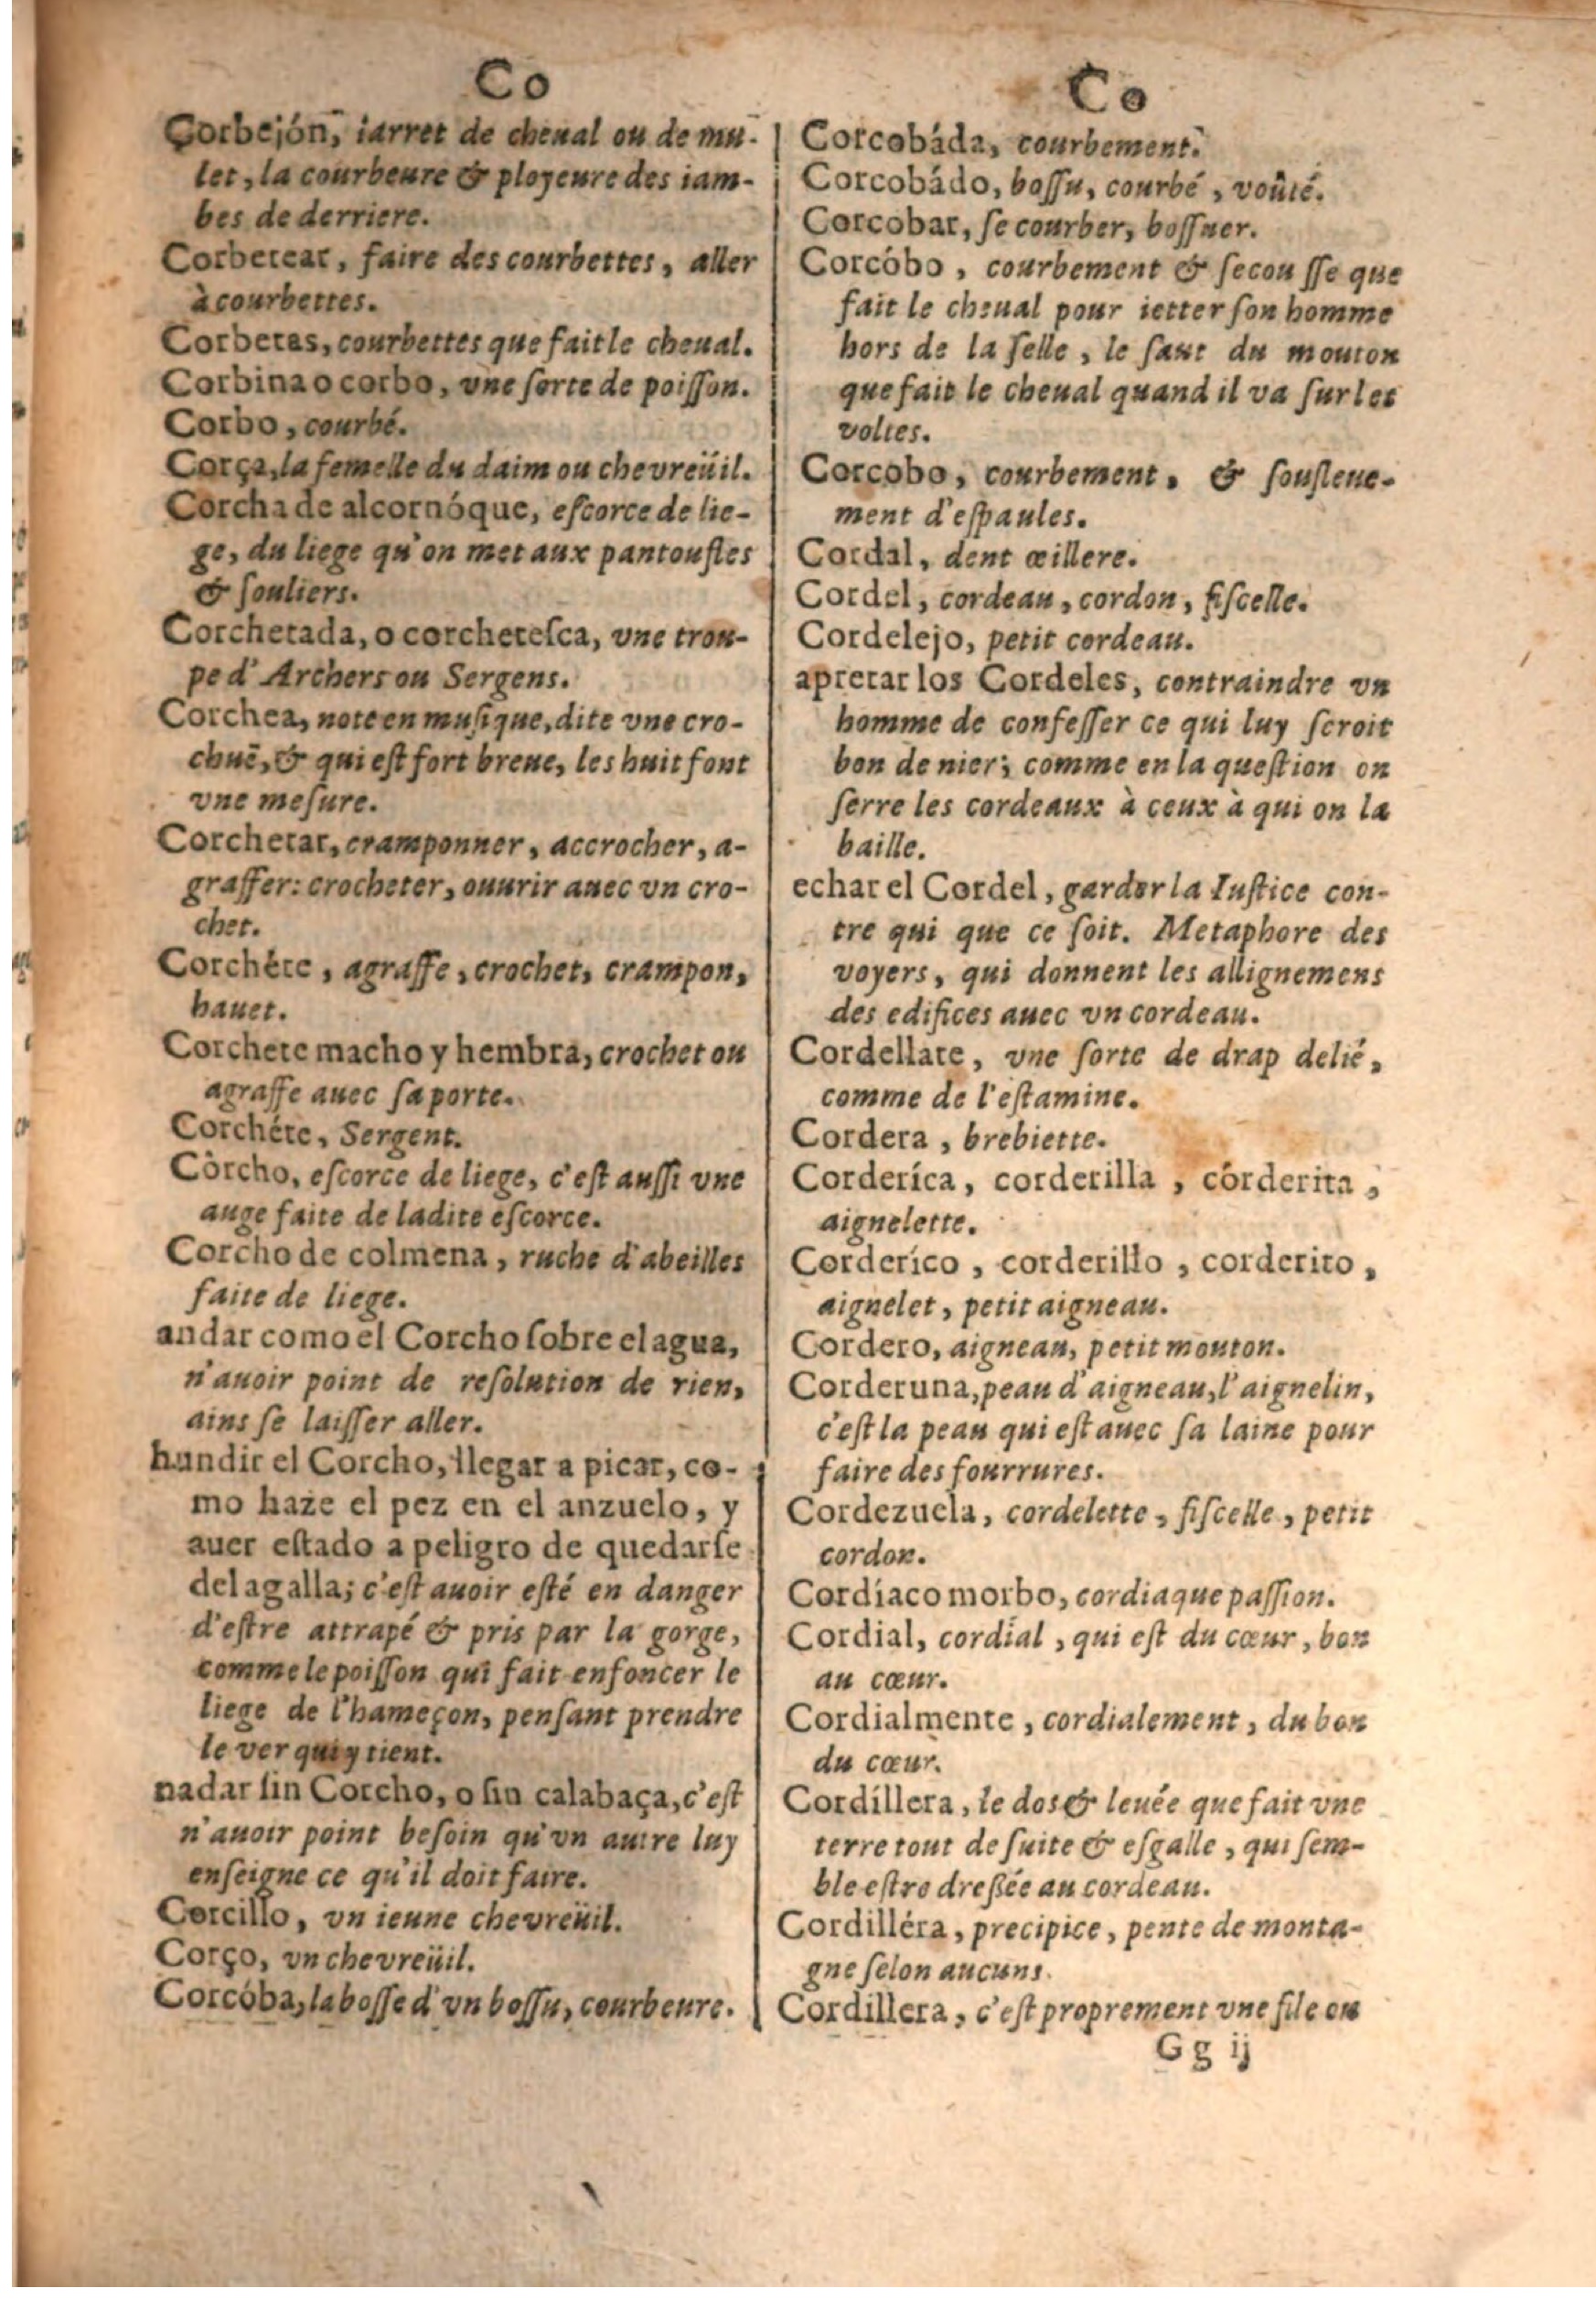 Co
Corbejón, iarret de cheual ou de mu-
let, la courbeure & ployeure des iam-
bes de derriere.
Corbetear, faire des courbettes, aller
à courbettes.
Corbetas, courbettes que fait le cheual.
Corbina o corbo, vne ſorte de poiſſon.
Corbo, courbé.
Corça, la femelle du daim ou chevreüil.
Corcha de alcornóque, eſcorce de lie-
ge, du liege qu'on met aux pantoufles
& ſouliers.
Corchetada, o corcheteſca, vne trou-
pe d'Archers ou Sergens.
Corchea, note en muſique, dite vne cro-
chuë, & qui eſt fort breue, les huit font
vne meſure.
Corchetar, cramponner, accrocher, a-
graffer: crocheter, ouurir auec vn cro-
chet.
Corchète, agraffe, crochet, crampon,
hauet.
Corchete macho y hembra, crochet ou
agraffe auec ſa porte.
Corchéte, Sergent.
Còrcho, eſcorce de liege, c'eſt auſſi vne
auge faite de ladite eſcorce.
Corcho de colmena, ruche d'abeilles
faite de liege.
andar como el Corcho ſobre el agua,
n'auoir point de reſolution de rien,
ains ſe laiſſer aller.
hundir el Corcho, llegar a picar, co-
mo haze el pez en el anzuelo, y
auer eſtado a peligro de quedarſe
del agalla; c'eſt auoir eſté en danger
d'eſtre attrapé & pris par la gorge,
comme le poiſſon qui fait enfoncer le
liege de l'hameçon, penſant prendre
le ver qui y tient.
nadar ſin Corcho, o ſin calabaça, c'eſt
n'auoir point beſoin qu'vn autre luy
enſeigne ce qu'il doit faire.
Corcillo, vn ieune chevreüil.
Corço, vn chevreüil.
Corcóba, la boſſe d'vn boſſu, courbeure.
Co
Corcobáda, courbement.
Corcobádo, boſſu, courbé, voûté.
Corcobar, ſe courber, boſſuer.
Corcóbo, courbement & ſecouſſe que
fait le cheual pour ietter ſon homme
hors de la ſelle, le ſaut du mouton
que fait le cheual quand il va ſur les
voltes.
Corcobo, courbement, & ſouſleue-
ment d'eſpaules.
Cordal, dent œillere.
Cordel, cordeau, cordon, fiſcelle.
Cordelejo, petit cordeau.
apretar los Cordeles, contraindre vn
homme de confeſſer ce qui luy ſeroit
bon de nier; comme en la queſtion on
ſerre les cordeaux à ceux à qui on la
baille.
echar el Cordel, garder la Iuſtice con-
tre qui que ce ſoit. Metaphore des
voyers, qui donnent les allignemens
des edifices auec vn cordeau.
Cordellate, vne ſorte de drap delié,
comme de l'eſtamine.
Cordera, brebiette.
Corderíca, corderilla, córderita,
aignelette.
Corderíco, corderillo, corderito,
aignelet, petit aigneau.
Cordero, aigneau, petit mouton.
Corderuna, peau d'aigneau, l'aignelin,
c'eſt la peau qui eſt auec ſa laine pour
faire des fourrures.
Cordezuela, cordelette, fiſcelle, petit
cordon.
Cordíaco morbo, cordiaque paſſion.
Cordial, cordial, qui eſt du cœur, bon
au cœur.
Cordialmente, cordialement, du bon
du cœur.
Cordíllera, le dos & leuée que fait vne
terre tout de ſuite & eſgalle, qui ſem-
ble eſtre dreſſée au cordeau.
Cordilléra, precipice, pente de monta-
gne ſelon aucuns.
Cordillera, c'eſt proprement vne file ou
Gg ij